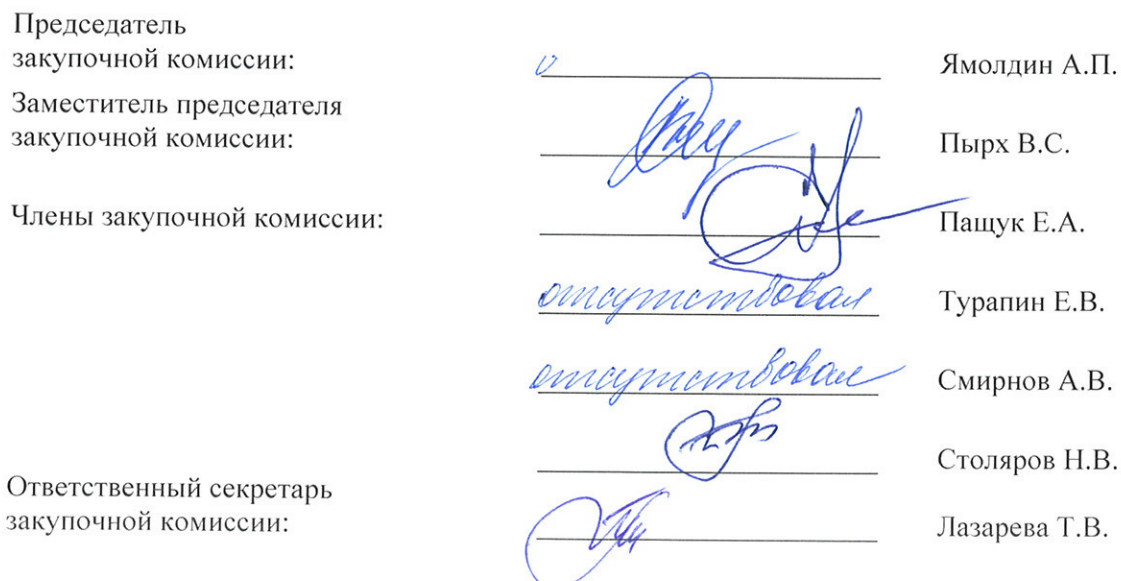 Председатель
закупочной комиссии: Ямолдин А.П.
Заместитель председателя
закупочной комиссии: Пырх В.С.
Члены закупочной комиссии: Пащук Е.А.
отсутствовал Турапин Е.В.
отсутствовал Смирнов А.В.
Столяров Н.В.
Ответственный секретарь
закупочной комиссии: Лазарева Т.В.